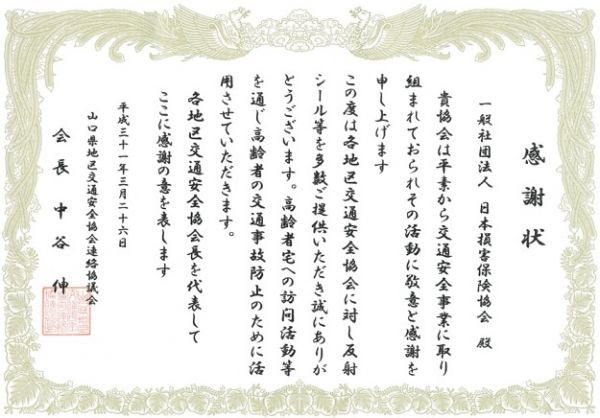 感謝状
一般社団法人 日本損害保険協会 殿
貴協会は平素から交通安全事業に取り
組まれておられその活動に敬意と感謝を
申し上げます
この度は各地区交通安全協会に対し反射
シール等を多数ご提供いただき誠にありが
とうございます。高齢者宅への訪問活動等
を通じ高齢者の交通事故防止のために活
用させていただきます。
各地区交通安全協会長を代表して
ここに感謝の意を表します
平成三十一年三月二十六日
山口県地区交通安全協会連絡協議会
会長 中谷 伸